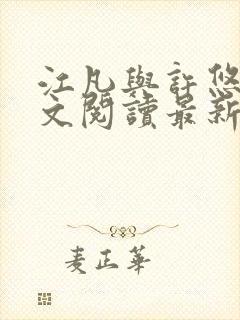 江凡與許悠
文閱讀最新
麦正華